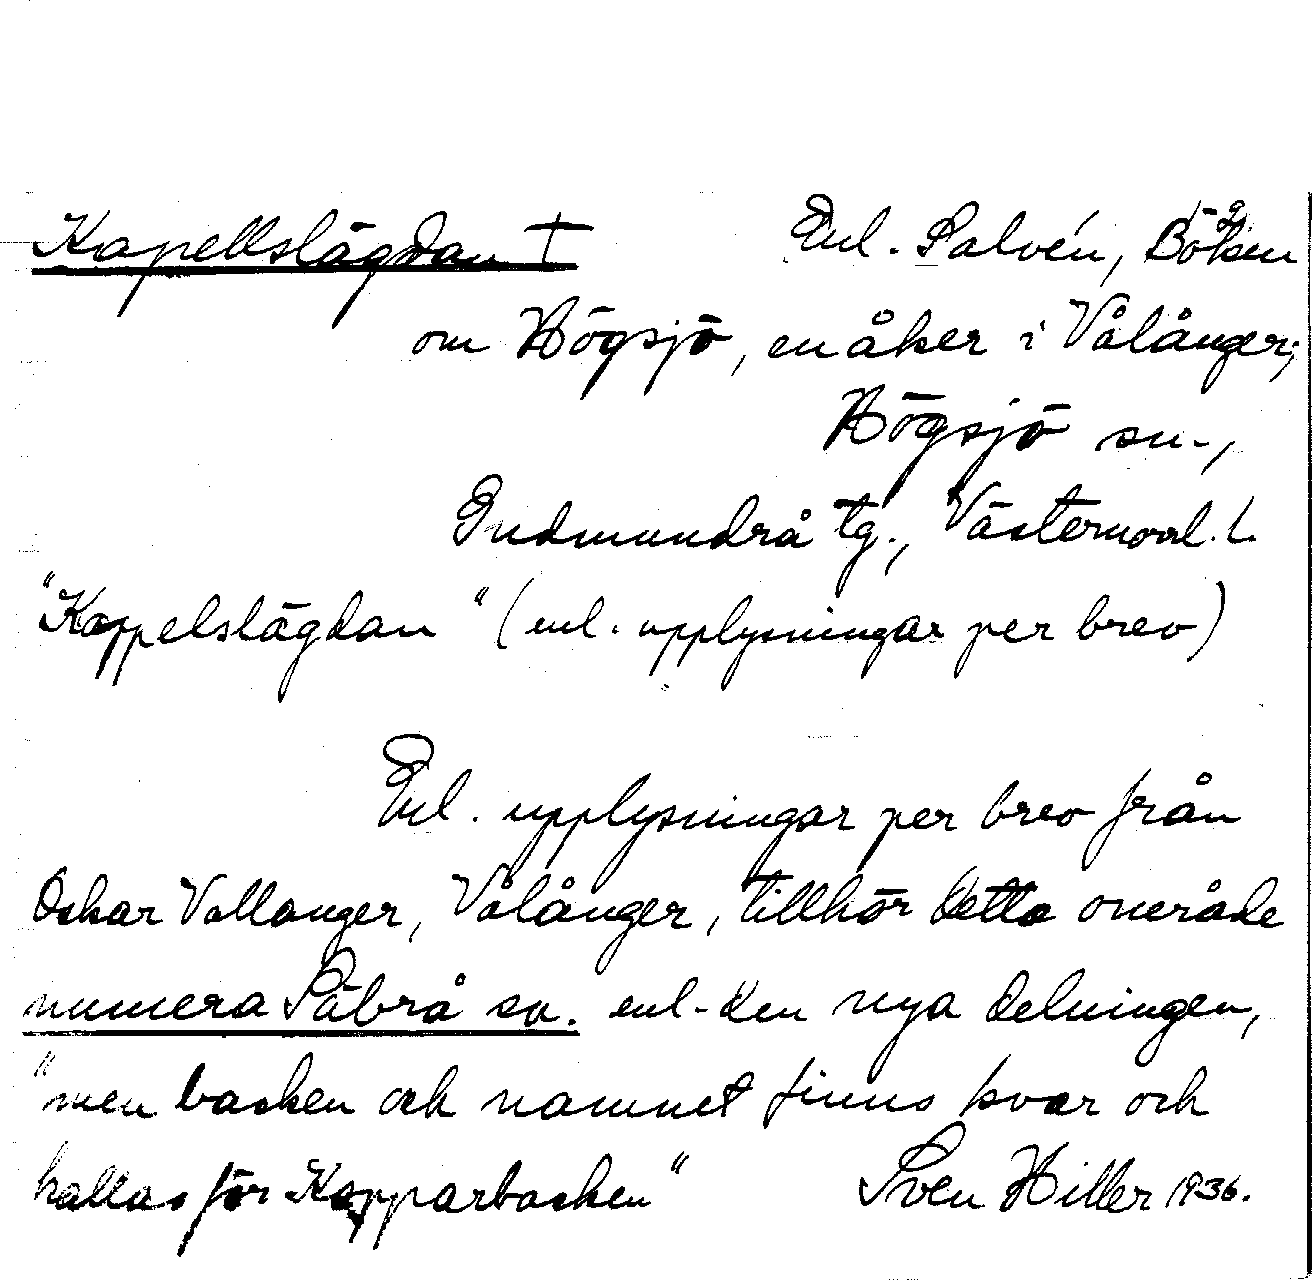 Kapellslägdan † Enl. Salvén, Boken
om Högsjö, en åker i Vålånger,
Högsjö sn.,
Gudmundrå tg., Västernorrl. l.
"Kappelslägdan" (enl. upplysningar per brev)
Enl. upplysningar per brev från
Oskar Vallanger, Vålånger, tillhör detta område
numera Säbrå sn. enl. den nya delningen,
"men backen och namnet finns kvar och
kallas för Kapparbacken" Sven Hiller 1936.